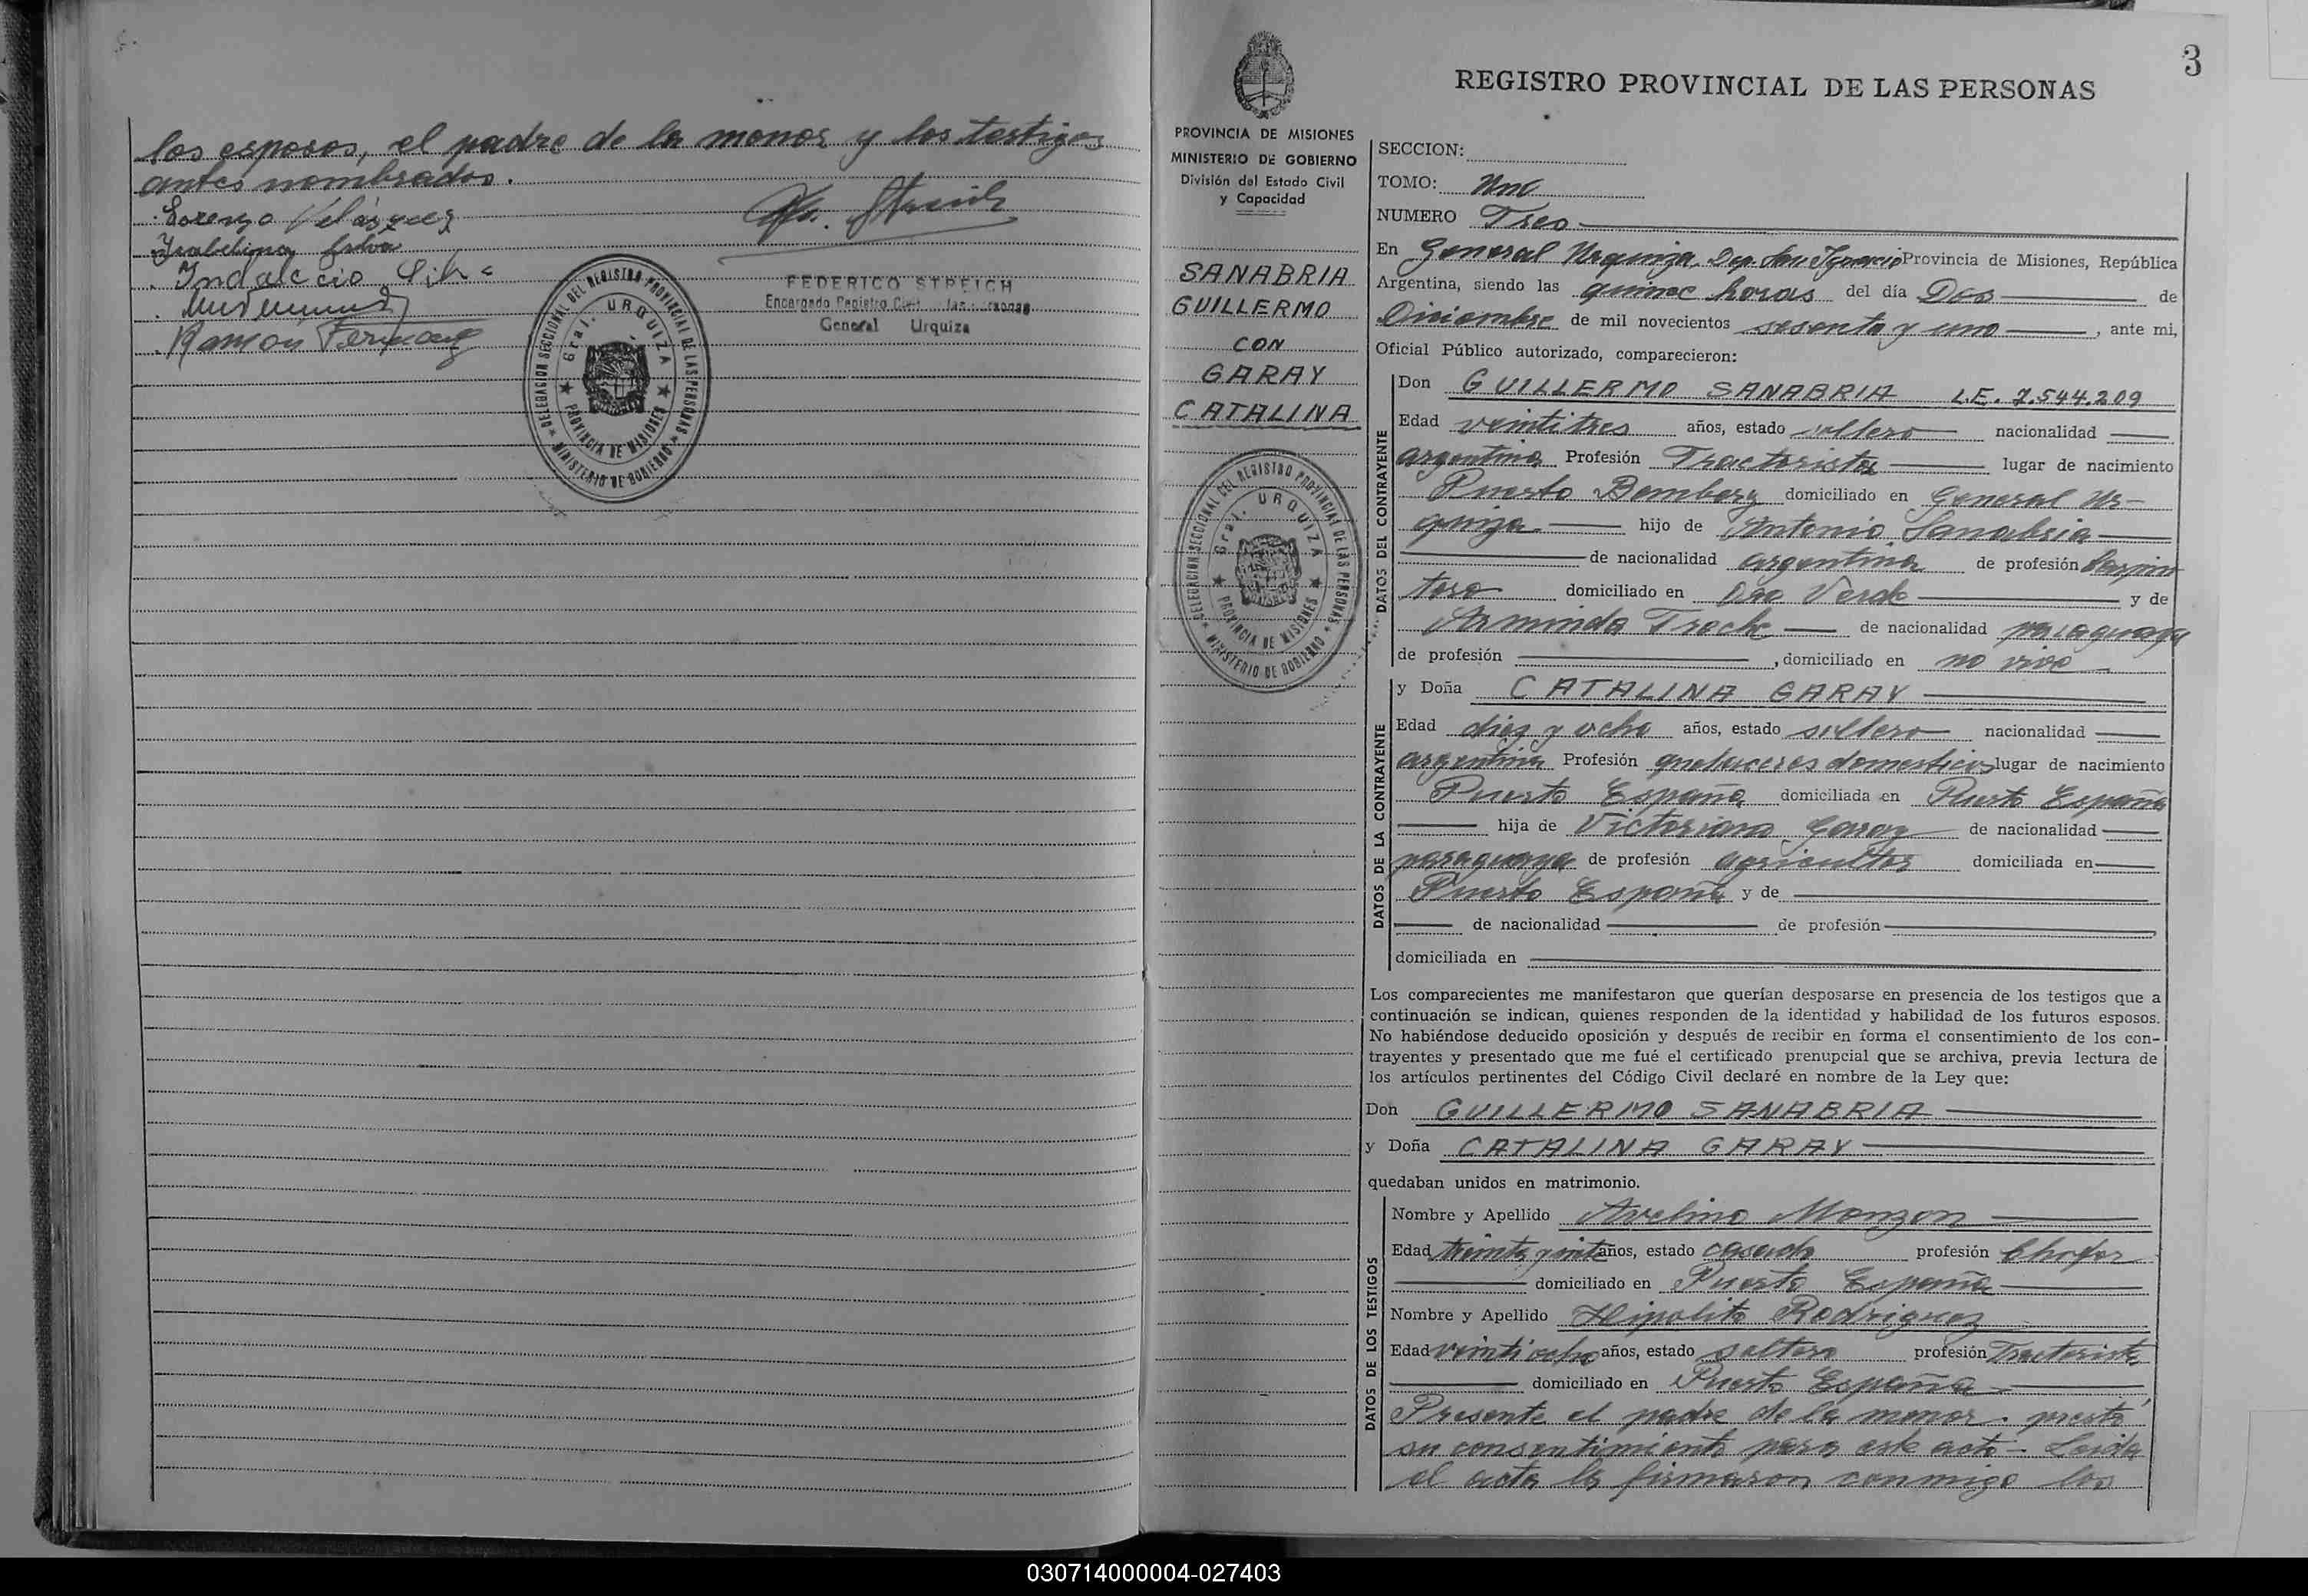 los esposos, el padre de la menor y los testigos
antes nombrados.
Lorenzo Velásquez
Indalecio Silva
Ramón Fernandez
FEDERICO STREICH
Encargado Registro Civil
General Urquiza
DELEGACION SECCIONAL DEL REGISTRO PROVINCIAL DE LAS PERSONAS
Gral. URQUIZA
PROVINCIA DE MISIONES
MINISTERIO DE GOBIERNO
3
REGISTRO PROVINCIAL DE LAS PERSONAS
PROVINCIA DE MISIONES
MINISTERIO DE GOBIERNO
División del Estado Civil
y Capacidad
SANABRIA
GUILLERMO
CON
GARAY
CATALINA
DELEGACION SECCIONAL DEL REGISTRO PROVINCIAL DE LAS PERSONAS
Gral. URQUIZA
PROVINCIA DE MISIONES
MINISTERIO DE GOBIERNO
SECCION:
TOMO: Uno
NUMERO Tres
En General Urquiza, Dep. San Ignacio Provincia de Misiones, República
Argentina, siendo las quince horas del día Dos de
Diciembre de mil novecientos sesenta y uno, ante mi,
Oficial Público autorizado, comparecieron:
DATOS DEL CONTRAYENTE
Don GUILLERMO SANABRIA L.E. 7.544.209
Edad veintitres años, estado soltero nacionalidad
argentina Profesión Tractorista lugar de nacimiento
Puerto Bemberg domiciliado en General Ur-
quiza hijo de Antonio Sanabria
de nacionalidad argentina de profesión Carpin
tero domiciliado en Oro Verde y de
Arminda Troche de nacionalidad paraguaya
de profesión , domiciliado en no vive
DATOS DE LA CONTRAYENTE
y Doña CATALINA GARAY
Edad diez y ocho años, estado soltero nacionalidad
argentina Profesión quehaceres domesticos lugar de nacimiento
Puerto España domiciliada en Puerto España
hija de Victoriano Garay de nacionalidad
paraguaya de profesión agricultor domiciliada en
Puerto España y de
de nacionalidad de profesión
domiciliada en
Los comparecientes me manifestaron que querían desposarse en presencia de los testigos que a
continuación se indican, quienes responden de la identidad y habilidad de los futuros esposos.
No habiéndose deducido oposición y después de recibir en forma el consentimiento de los con-
trayentes y presentado que me fué el certificado prenupcial que se archiva, previa lectura de
los artículos pertinentes del Código Civil declaré en nombre de la Ley que:
Don GUILLERMO SANABRIA
y Doña CATALINA GARAY
quedaban unidos en matrimonio.
DATOS DE LOS TESTIGOS
Nombre y Apellido Avelino Monzon
Edad treinta y años, estado casado profesión Chofer
domiciliado en Puerto España
Nombre y Apellido Hipolito Rodriguez
Edad veintiocho años, estado soltero profesión Tractorista
domiciliado en Puerto España
Presente el padre de la menor. presta
su consentimiento para este acto - Leida
el acta la firmaron conmigo los
030714000004-027403